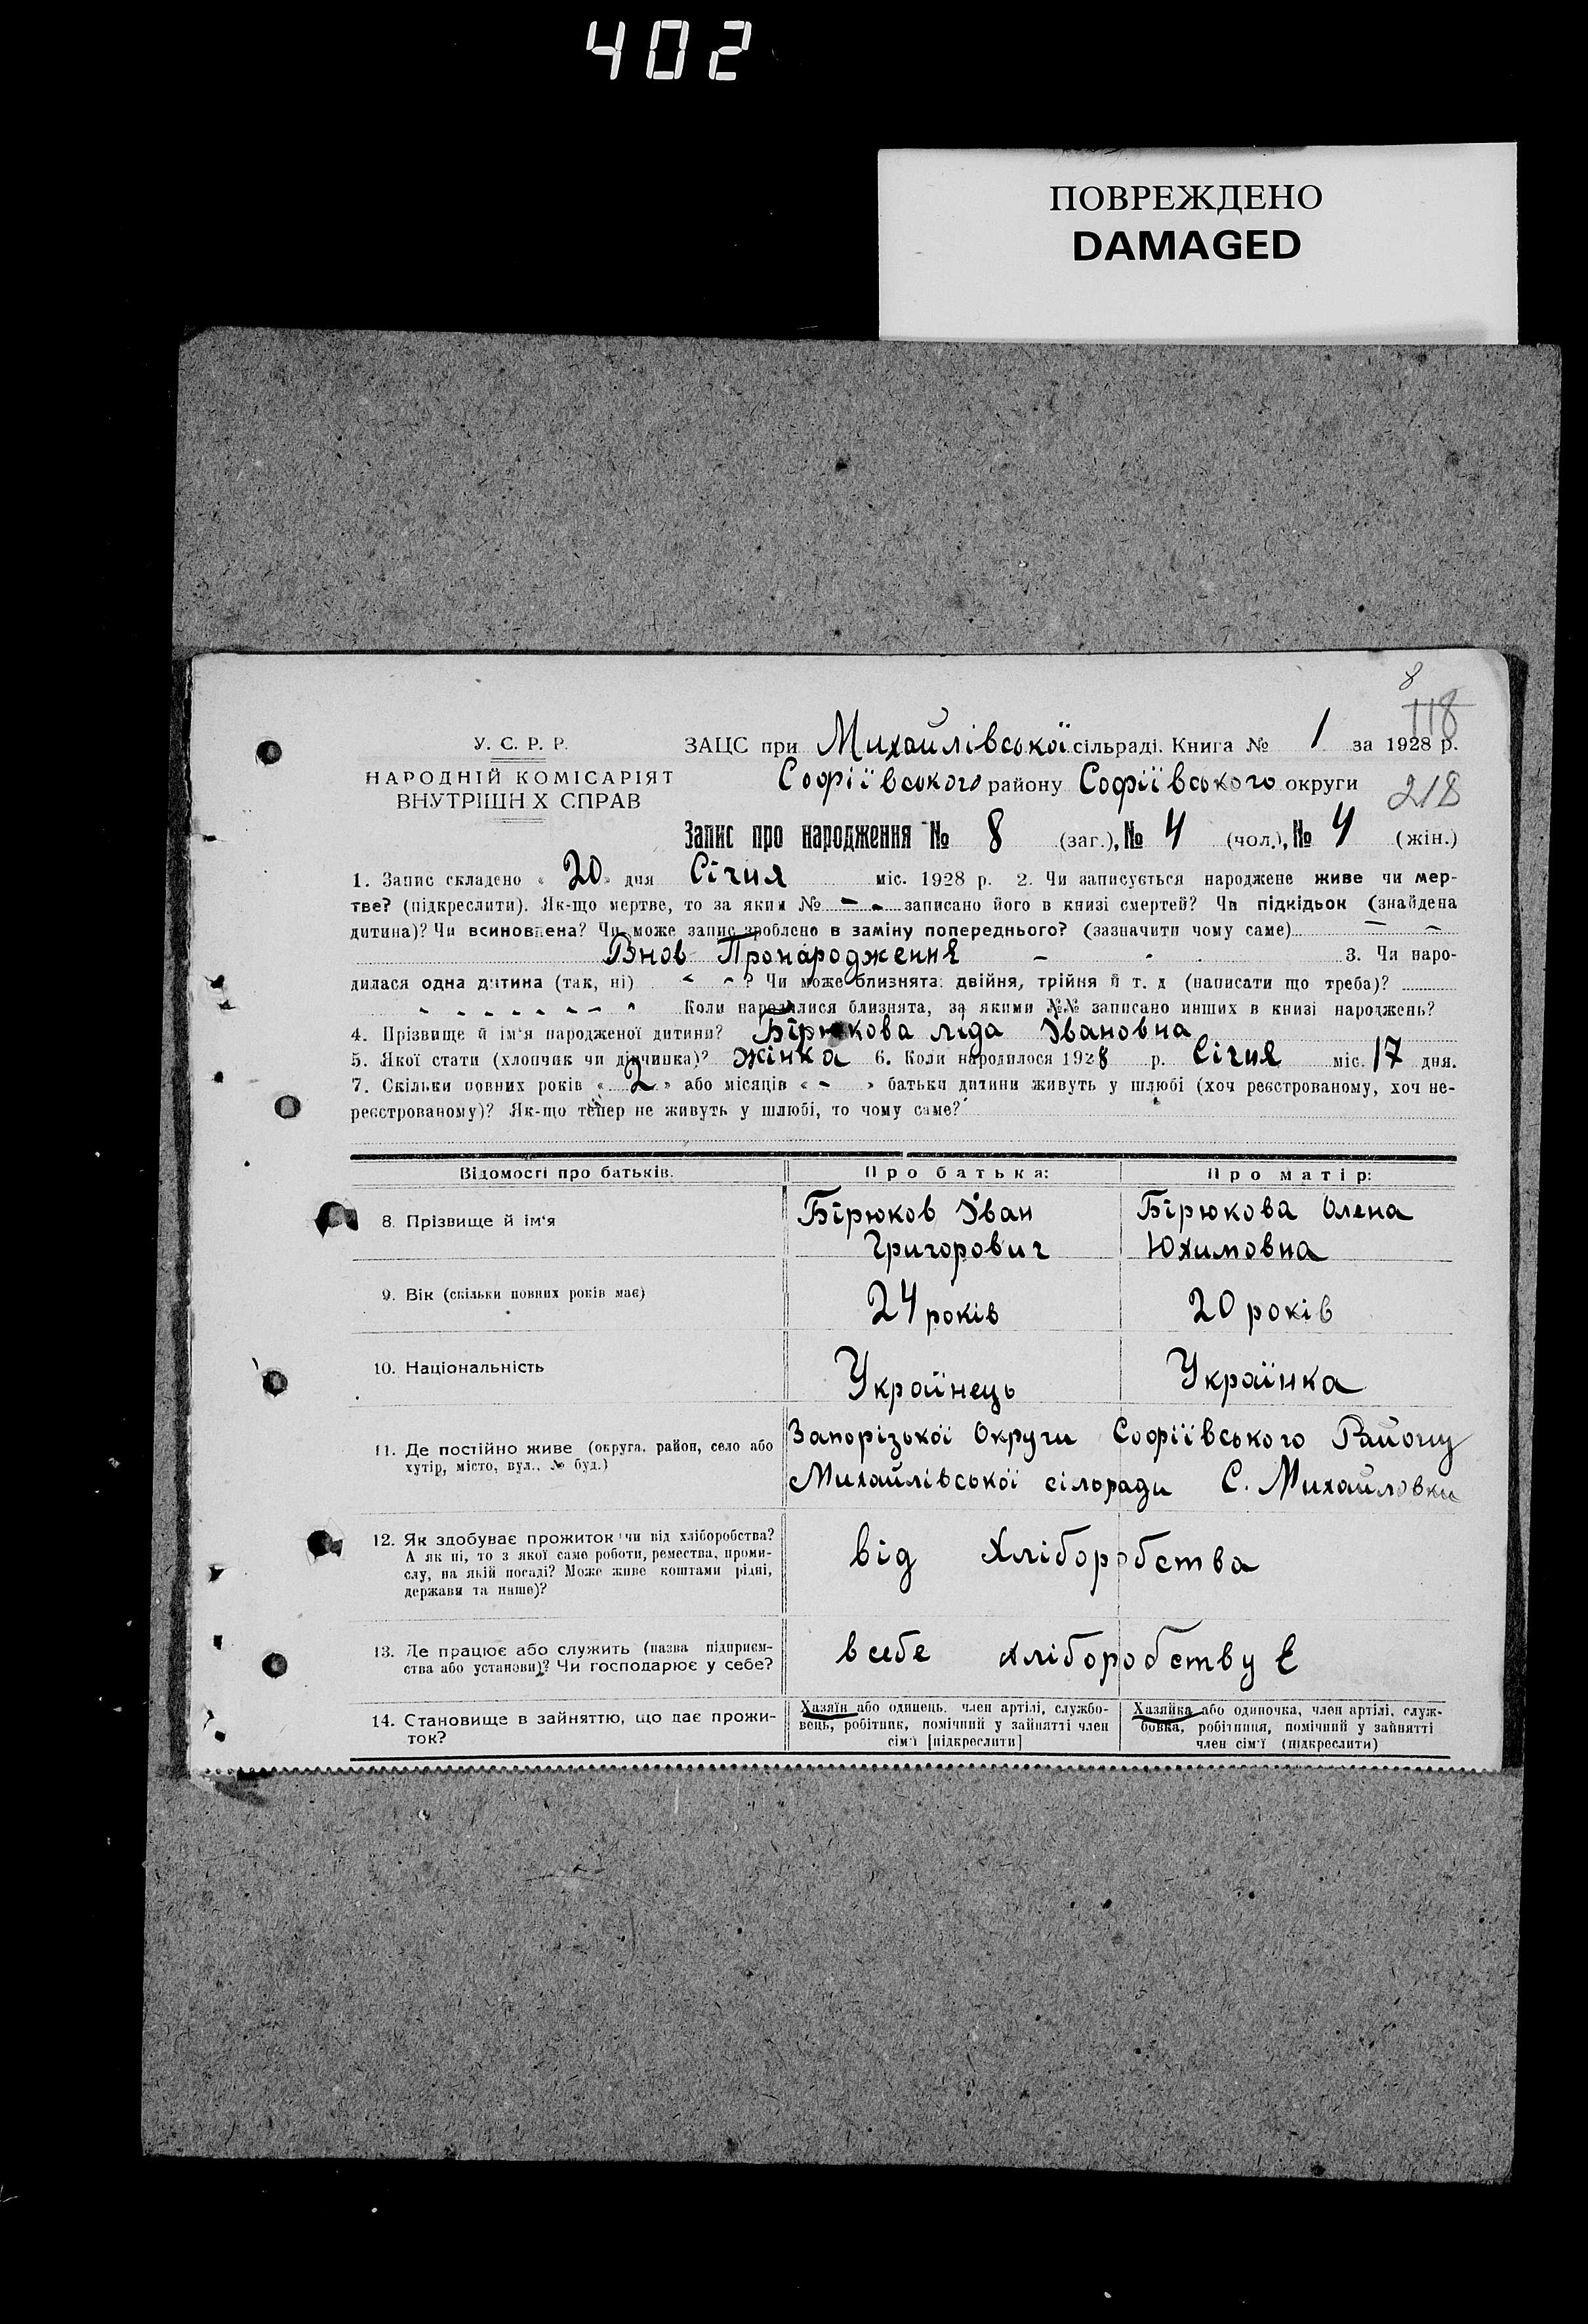 402
ПОВРЕЖДЕНО
DAMAGED
8
118
У. С. Р. Р.
НАРОДНІЙ КОМІСАРІЯТ
ВНУТРІШН Х СПРАВ
ЗАЦС при Михайлівської сільраді. Книга № 1 за 1928 р.
Софіївського району Софіївського округи
218
Запис про народження № 8 (заг.), № 4 (чол.), № 4 (жін.)
1. Запис складено « 20 » дня Січня міс. 1928 р. 2. Чи записується народжене живе чи мер-
тве? (підкреслити). Як-що мертве, то за яким № - - записано його в книзі смертей? Чи підкідьок (знайдена
дитина)? Чи всиновлена? Чи може запис зроблено в заміну попереднього? (зазначити чому саме) — —
Внов Пронародження - - 3. Чи наро-
дилася одна дитина (так, ні) - - ? Чи може близнята: двійня, трійня й т. д (написати що треба)?
- - - - - - - Коли народилися близнята, за якими №№ записано инших в книзі народжень?
4. Прізвище й ім'я народженої дитини? Бірюкова Ліда Івановна
5. Якої стати (хлопчик чи дівчинка)? Жінка 6. Коли народилося 1928 р. Січня міс. 17 дня.
7. Скільки повних років « 2 » або місяців « - » батьки дитини живуть у шлюбі (хоч реєстрованому, хоч не-
реєстрованому)? Як-що тепер не живуть у шлюбі, то чому саме?
Відомості про батьків. Про батька: Про матір:
8. Прізвище й ім'я Бірюков Іван Бірюкова Олена
Григорович Юхимовна
9. Вік (скільки повних років має) 24 років 20 років
10. Національність Українець Українка
11. Де постійно живе (округа, район, село або Запорізької Округи Софіївського Району
хутір, місто, вул., № буд.) Михайлівської сілоради С. Михайловки
12. Як здобуває прожиток чи від хліборобства? від Хліборобства
А як ні, то з якої саме роботи, ремества, проми-
слу, на якій посаді? Може живе коштами рідні,
держави та инше)?
13. Де працює або служить (назва підприєм- всебе хліборобству Є
ства або установи)? Чи господарює у себе?
14. Становище в зайняттю, що дає прожи- Хазяїн або одинець, член артілі, службо- Хазяйка або одиночка, член артілі, служ-
ток? вець, робітник, помічний у зайнятті член бовка, робітниця, помічний у зайнятті
сім'ї [підкреслити] член сім'ї (підкреслити)